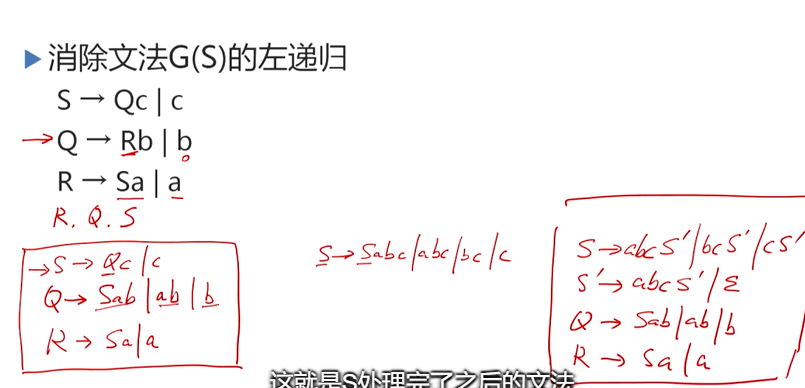 ▶消除文法G(S)的左递归
S → Qc | c
→ Q → Rb | b
R → Sa | a
R. Q. S
→ S → Qc | c
Q → Sab | ab | b
R → Sa | a
S → Sabc | abc | bc | c
S → abcS' | bcS' | cS'
S' → abcS' | ε
Q → Sab | ab | b
R → Sa | a
这就是S处理完了之后的文法